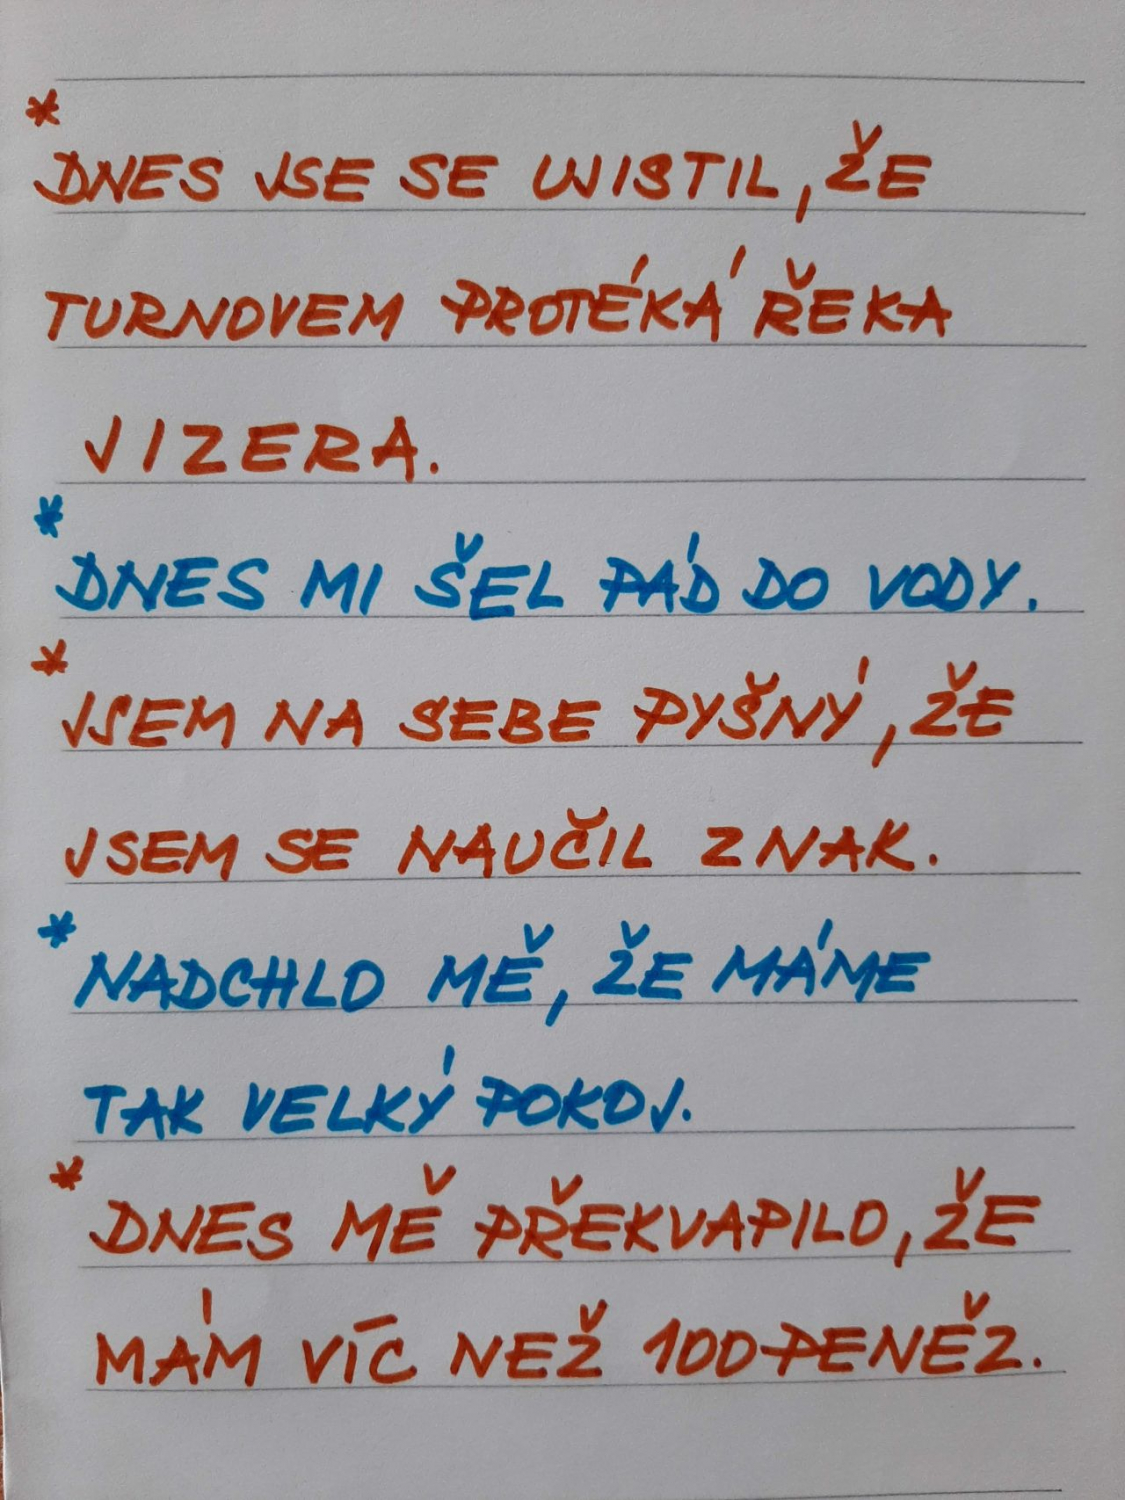 *
DNES JSE SE UJISTIL, ŽE
TURNOVEM PROTÉKÁ ŘEKA
JIZERA.
*
DNES MI ŠEL PÁD DO VODY.
*
JSEM NA SEBE PYŠNÝ, ŽE
JSEM SE NAUČIL ZNAK.
*
NADCHLO MĚ, ŽE MÁME
TAK VELKÝ POKOJ.
*
DNES MĚ PŘEKVAPILO, ŽE
MÁM VÍC NEŽ 100 PENĚZ.